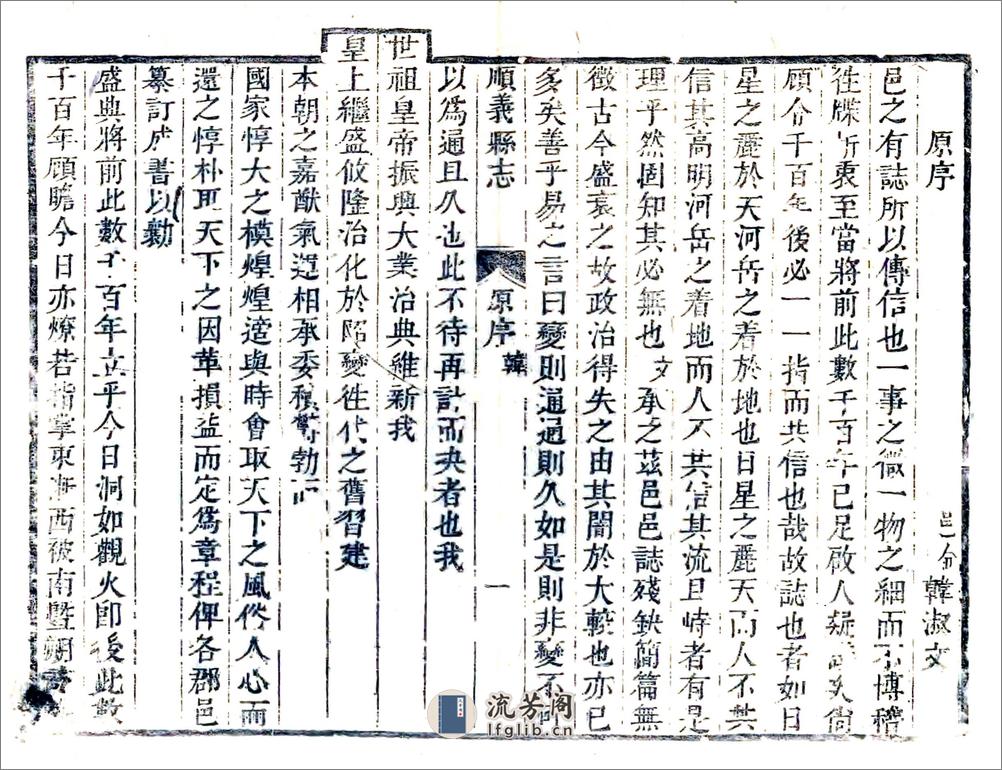 原序
邑令韓淑文
邑之有誌所以傳信也一事之微一物之細而不博稽
徃牒折衷至當將前此數千百年已足啟人疑矣尚
顧令千百年後必一一指而共信也哉故誌也者如日
星之麗於天河岳之着於地也日星之麗天而人不共
信其高明河岳之着地而人不共信其流且峙者有是
理乎然固知其必無也文承之茲邑邑誌殘缺簡篇無
徵古今盛衰之故政治得失之由其闇於大較也亦已
多矣善乎易之言曰變則通通則久如是則非變不
順義縣志
原序
韓
一
以爲通且久也此不待再計而决者也我
世祖皇帝振興大業治典維新我
皇上繼盛攸隆治化於變徃代之舊習建
本朝之嘉猷氣運相承委積勃
國家惇大之模煌煌遵與時會取天下之風俗人心而
還之惇朴取天下之因革損益而定爲章程俾各郡邑
纂訂成書以勷
盛典將前此數千百年立乎今日洞如觀火卽後此數
千百年顧瞻今日亦燎若指掌東西被南曁朔
流芳阁
lfglib.cn